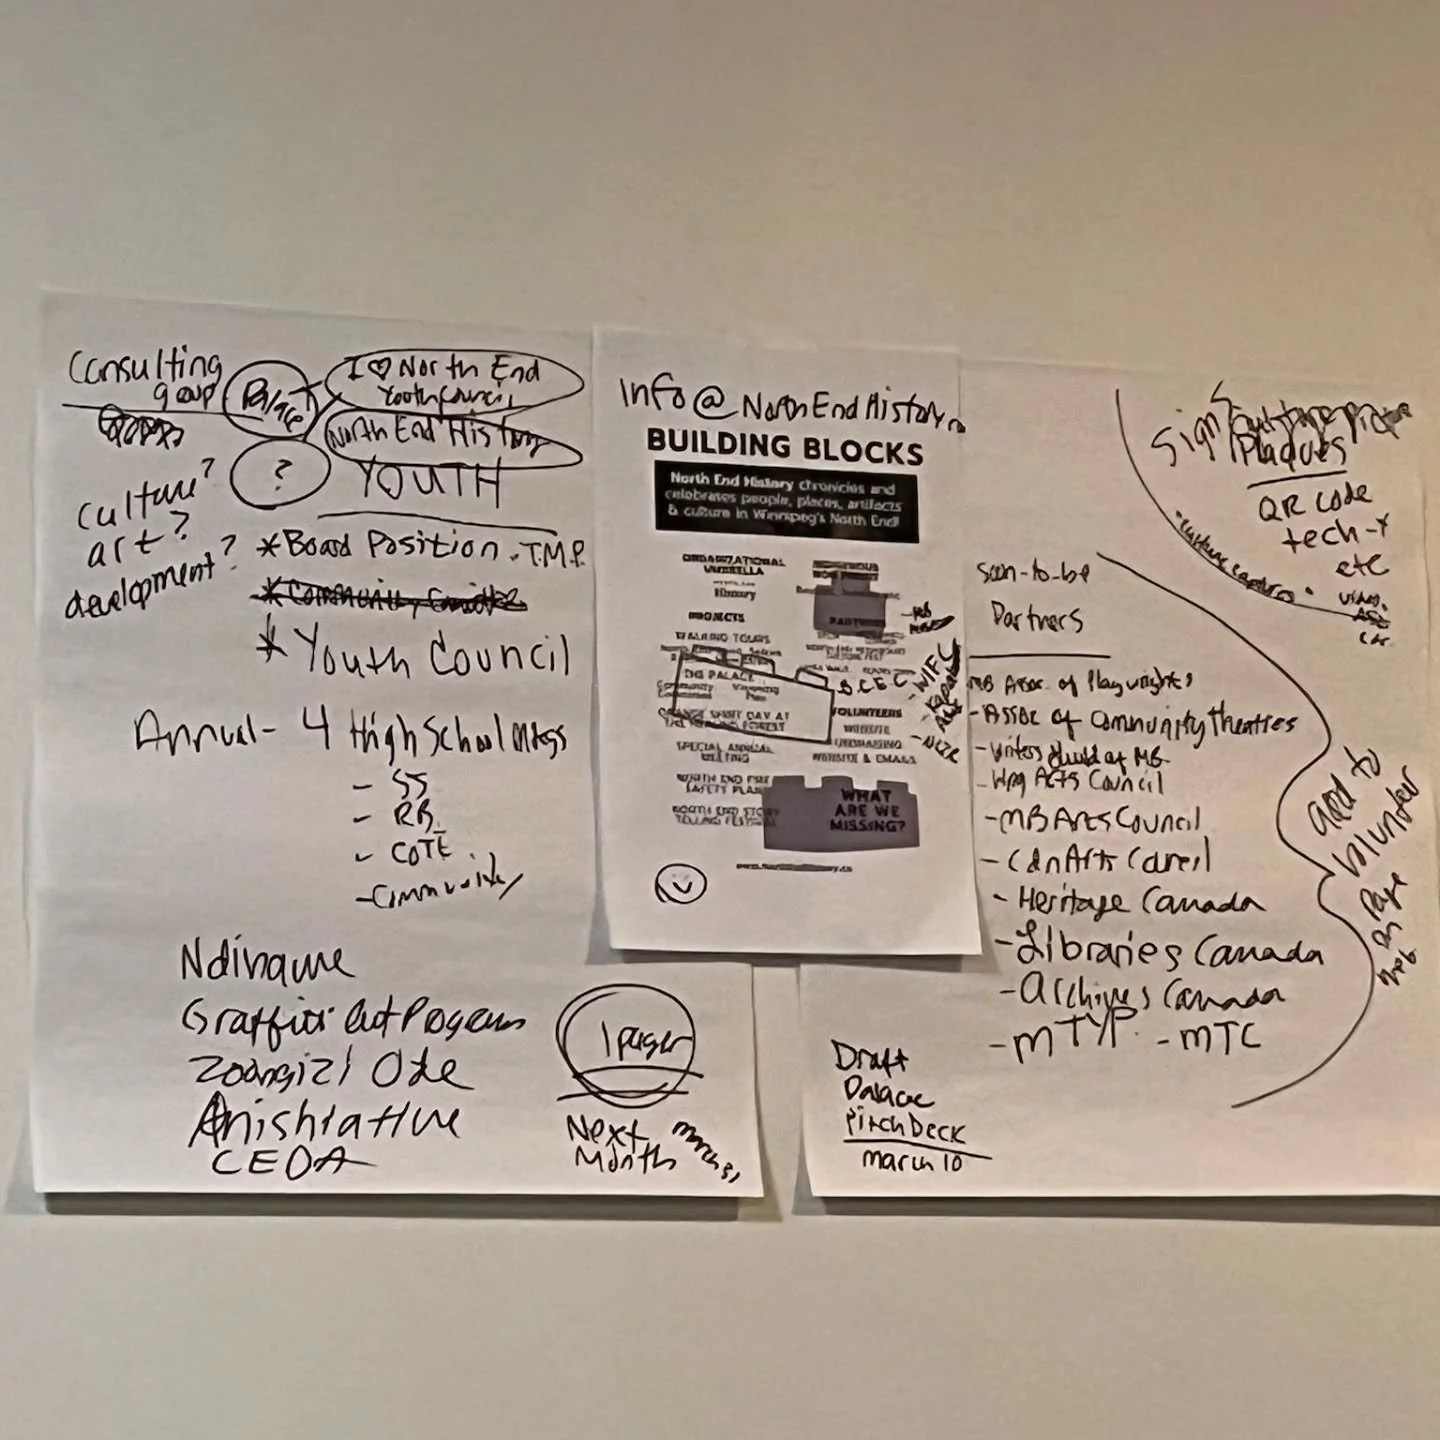 Consulting
group
Palace
I ♡ North End
Youth Council
North End History
?
YOUTH
culture?
art?
development?
*Board Position - T.M.P.
*Community Committee
*Youth Council
Annual - 4 High School Mtgs
- SS
- RB
- COTE
- Community
Ndinawe
Graffiti Art Programs
Zoongizi Ode
CEDA
1 pager
Next
Month
March 31
Info@NorthEndHistory.ca
BUILDING BLOCKS
North End History chronicles and
celebrates people, places, artifacts
& culture in Winnipeg's North End!
ORGANIZATIONAL
UMBRELLA
History
PROJECTS
WALKING TOURS
THE PALACE
Community
ORANGE SHIRT DAY AT
THE HEALING FOREST
SPECIAL ANNUAL
MEETING
NORTH END FIRE
SAFETY PLAN
NORTH END STORY
TELLING FESTIVAL
INDIGENOUS
PARTNERS
B.C.E.C
- WIFC
VOLUNTEERS
WEBSITE
FUNDRAISING
WEBSITE & EMAILS
WHAT
ARE WE
MISSING?
www.northendhistory.ca
Soon-to-be
Partners
MB Assoc. of Playwrights
- Assoc of Community Theatres
- Writers Guild of MB
- Wpg Arts Council
- MB Arts Council
- Cdn Arts Council
- Heritage Canada
- Libraries Canada
- Archives Canada
- MTYP - MTC
Draft
Palace
Pitch Deck
March 10
Signs
Plaques
QR code
tech-y
etc
add to
volunteer
page